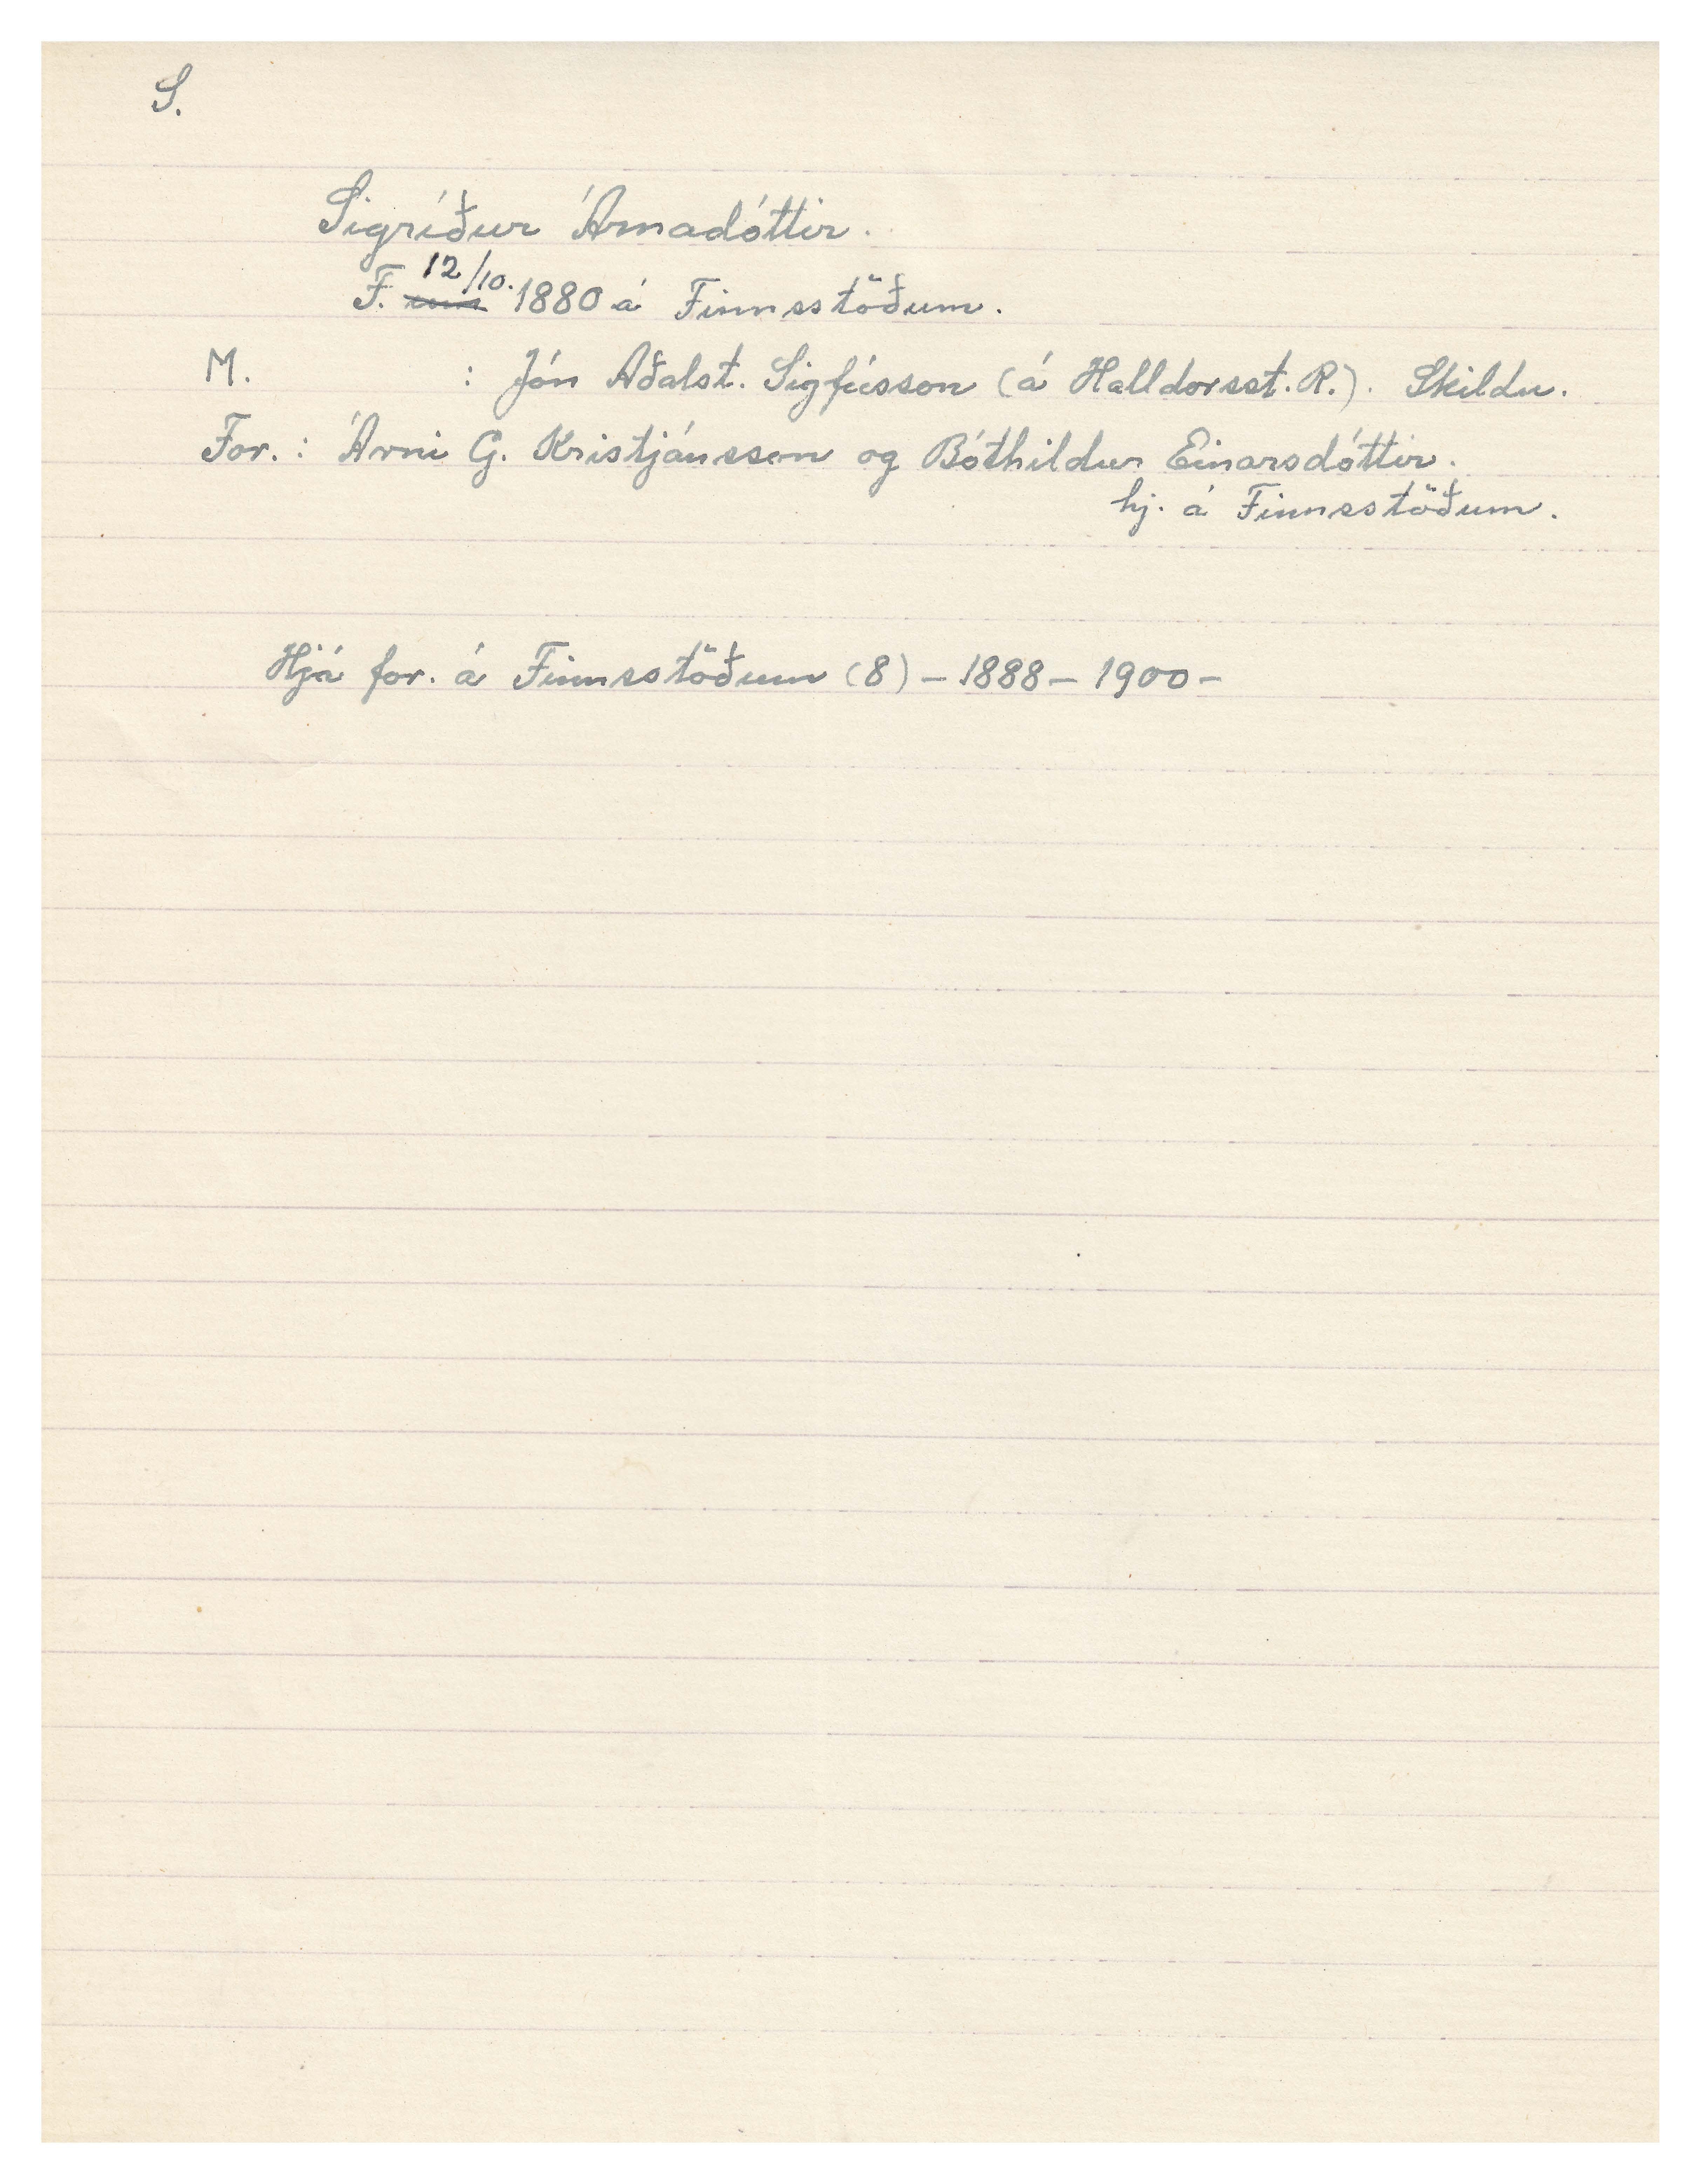 S.
Sigríður Árnadóttir.
F. 12/10. 1880 á Finnsstöðum.
M. : Jón Aðalst. Sigfússon (á Halldorsst. R.). Skildu.
For. : Árni G. Kristjánsson og Bóthildur Einarsdóttir.
hj. á Finnsstöðum.
Hjá for. á Finnsstöðum (8) – 1888 – 1900 –